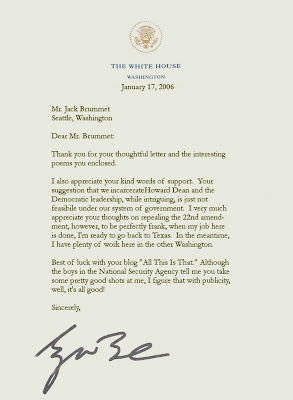 THE WHITE HOUSE
WASHINGTON
January 17, 2006
Mr. Jack Brummet
Seattle, Washington
Dear Mr. Brummet:
Thank you for your thoughtful letter and the interesting
poems you enclosed.
I also appreciate your kind words of support. Your
suggestion that we incarcerateHoward Dean and the
Democratic leadership, while intriguing, is just not
feasibile under our system of government. I very much
appreciate your thoughts on repealing the 22nd amend-
ment, however, to be perfectly frank, when my job here
is done, I'm ready to go back to Texas. In the meantime,
I have plenty of work here in the other Washington.
Best of luck with your blog "All This Is That." Although
the boys in the National Security Agency tell me you take
some pretty good shots at me, I figure that with publicity,
well, it's all good!
Sincerely,